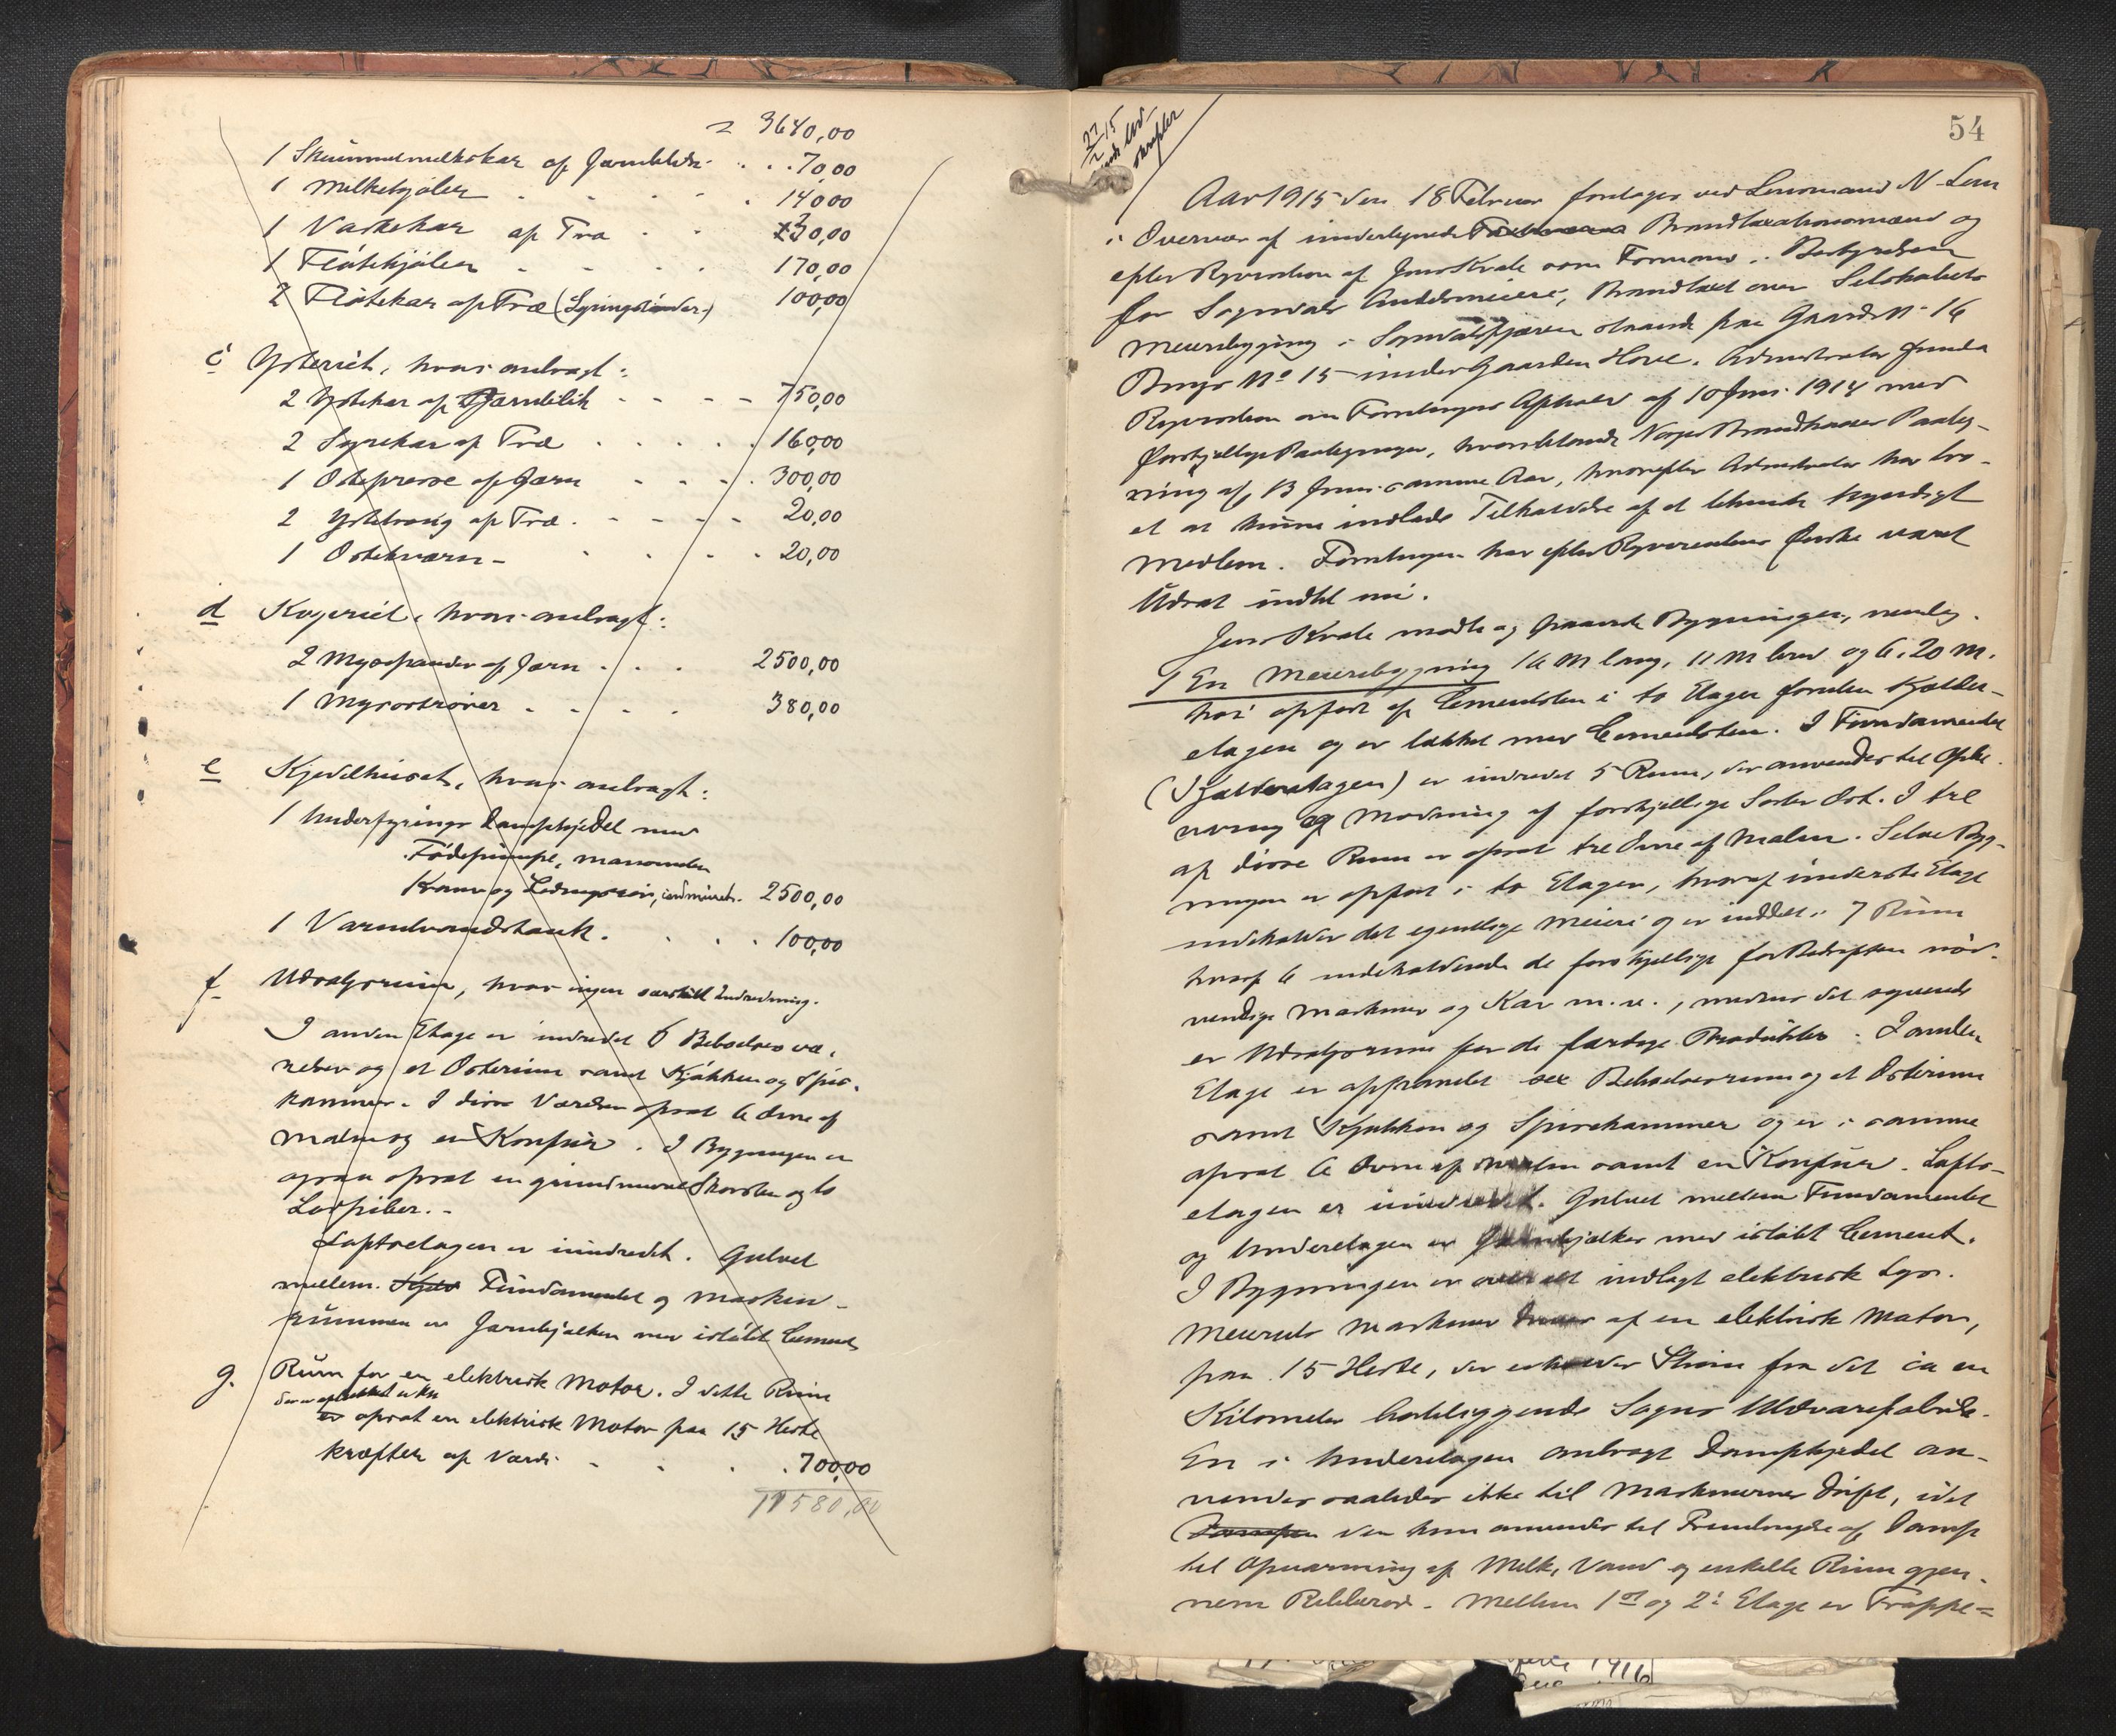 3640,00
1 Skummemelkskar af Jernblik . . . 70,00
1 Melkekjøler . . . . . 140,00
1 Vaskekar af Træ . . 30,00
1 Fløtekjøler . . . . 170,00
2 Fløtekar af Træ (Syringstønder) 100,00
c Ysteriet, hvori anbragt:
2 Ystekar af Jernblik - - - - 750,00
2 Syrekar af Træ . . . . . 160,00
1 Ostepresse af Jærn - - - . 300,00
2 af Træ . - - - - 20,00
1 Ostekværn - . . . . 20,00
d Kogeriet, hvori anbragt:
2 Mysepander af Jærn . . . 2500,00
1 Mysostrører . . . . 380,00
e Kjedelhuset, hvori anbragt:
1 Underfyrings Dampkjedel med
Fødepumpe, manometer
Kran og 2500,00
1 Varmtvandstank . . . . 100,00
f Udsalgsrum, hvori ingen særskilt Indredning.
I anden Etage er indredet 6 Beboelsesvæ-
relser og et Osterum samt Kjøkken og Spis-
kammer. I disse Værelser opsat 6 Ovne af
Malm og en Komfur. I Bygningen er
ogsaa opsat en grundmuret Skorsten og to
Luftpiber. -
Loftsetagen er uindredet. Gulvet
mellem Fundamentet og Maskin-
rummen er Jernbjælker med istøbt Cement
g. Rum for en elektrisk Motor. I dette Rum
er opsat en elektrisk Motor paa 15 Heste
kræfter af Værdi - . . . 700,00
11580,00
54
27/2 15
Aar 1915 den 18 Februar foretoges ved Lensmand N. Lem
i Overvær af undertegnede Brandtaxationsmænd og
efter Reqvisition af Jens Kvale som Formand i Bestyrelsen
for Sogndals Andelsmeieri, Brandtaxt over Selskabets
Meieribygning i Sogndalsfjæren staaende paa Gaards N. 16
Brugs No 15 under Gaarden Hove. Administrator fremla
Reqvisition om Forretningens Afholdelse af 10 Juni 1914 med
forskjellige Paategninger, hvoriblandt Norges Brandkasses Paateg-
ning af 13 Juni samme Aar, hvorefter Administrator har tro-
et at kunne undlade Tilkaldelse af et teknisk kyndigt
Medlem. Forretningen har efter Reqvirentens Ønske været
Udsat indtil nu.
Jens Kvale mødte og paaviste Bygningen, nemlig.
1 En Meieribygning 16 M lang, 11 M bred og 6,20 M.
høi opført af Cementsten i to Etager foruden Kjælder-
etagen og er tækket med Cementsten. I Fundamentet
(Kjælderetagen) er indredet 5 Rum, der anvendes til Opbe-
varing og Modning af forskjellige Sorter Ost. I tre
af disse Rum er opsat tre Ovne af Malm. Selve Byg-
ningen er opført i to Etager, hvoraf underste Etage
indeholder det egentlige Meieri og er inddelt i 7 Rum
hvoraf 6 indeholdende de forskjellige for Bedriften nød-
vendige Maskiner og Kar m.v., medens det syvende
er Udsalgsrum for de færdige Produkter. I anden
Etage er oppandet sex Beboelsesrum og et Osterum
samt Kjøkken og Spisekammer og er i samme
opsat 6 Ovne af Malm samt en Komfur. Lofts-
etagen er uindredet. Gulvet mellem Fundamentet
og Underetagen er Jernbjælker med istøbt Cement.
I Bygningen er overalt indlagt elektrisk Lys.
Meieriets Maskiner drives af en elektrisk Motor,
paa 15 Heste, der erholder Strøm fra det ca en
Kilometer bortliggende Sogns Uldvarefabrik.
En i Underetagen anbragt Dampkjedel an-
vendes saaledes ikke til Maskinernes Drift, idet
Dampen den kun anvendes til Frembringelse af Damp
til Opvarming af Melk, Vand og enkelte Rum gjen-
nem Ribberør. Mellem 1ste og 2: Etage er Trappe=
1916